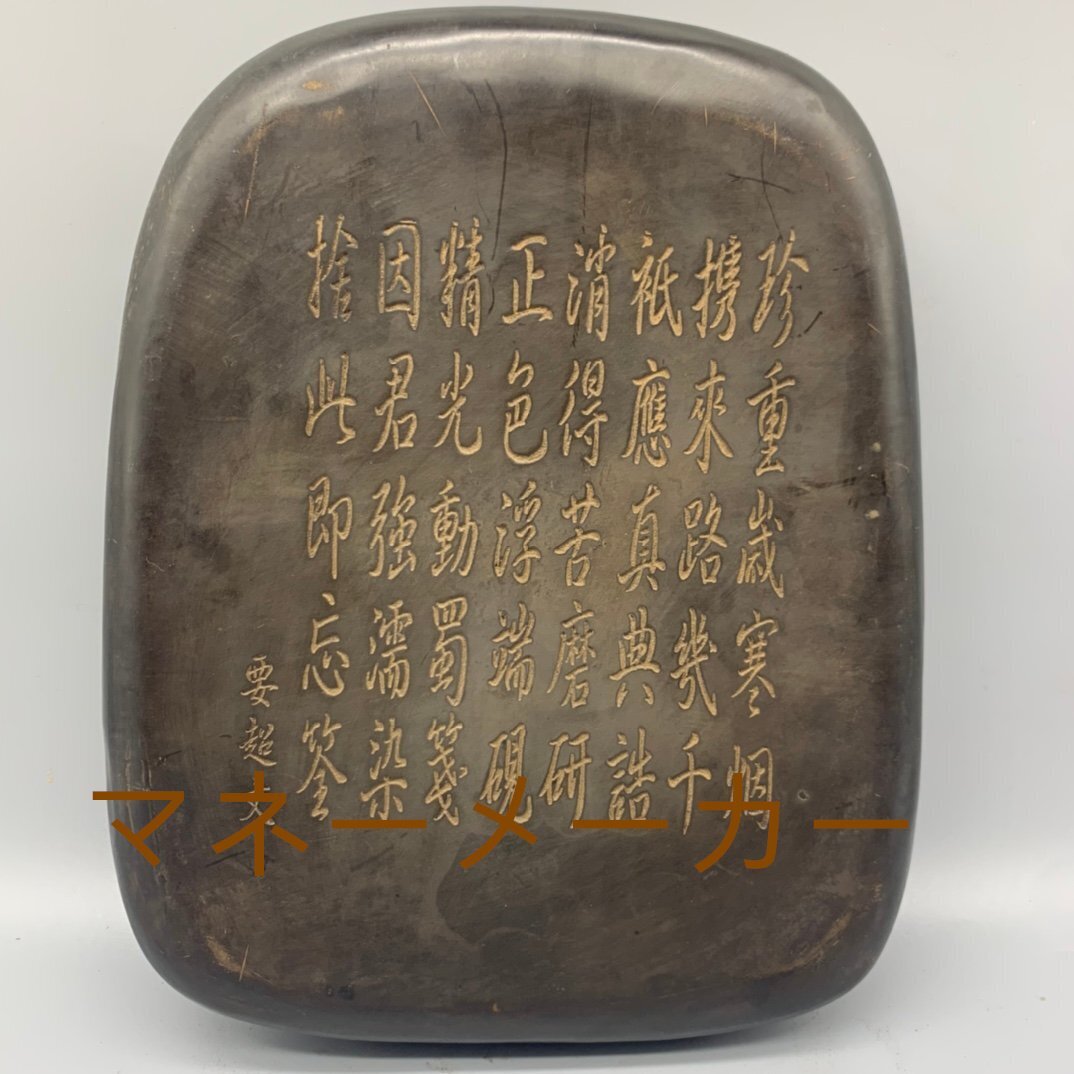 珍重歲寒烟
攜來路幾千
祇應真典誥
消得苦磨研
正色浮端硯
精光動蜀箋
因君強濡染
捨此即忘筌
要超
マネーメーカー